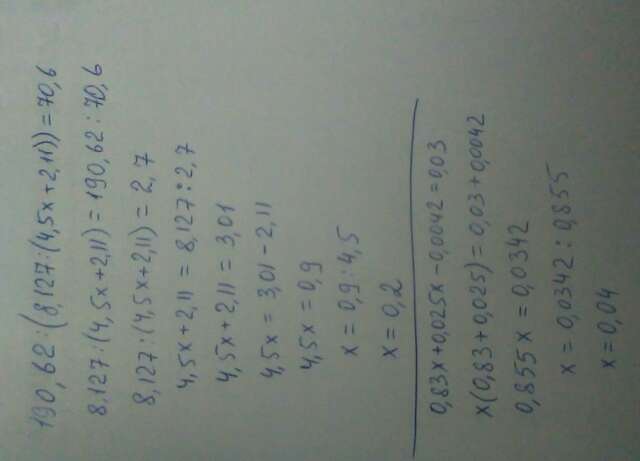 190,62:(8,127:(4,5x+2,11))=70,6
8,127:(4,5x+2,11)=190,62:70,6
8,127:(4,5x+2,11)=2,7
4,5x+2,11=8,127:2,7
4,5x+2,11=3,01
4,5x=3,01-2,11
4,5x=0,9
x=0,9:4,5
x=0,2
0,83x+0,025x-0,0042=0,03
x(0,83+0,025)=0,03+0,0042
0,855x=0,0342
x=0,0342:0,855
x=0,04